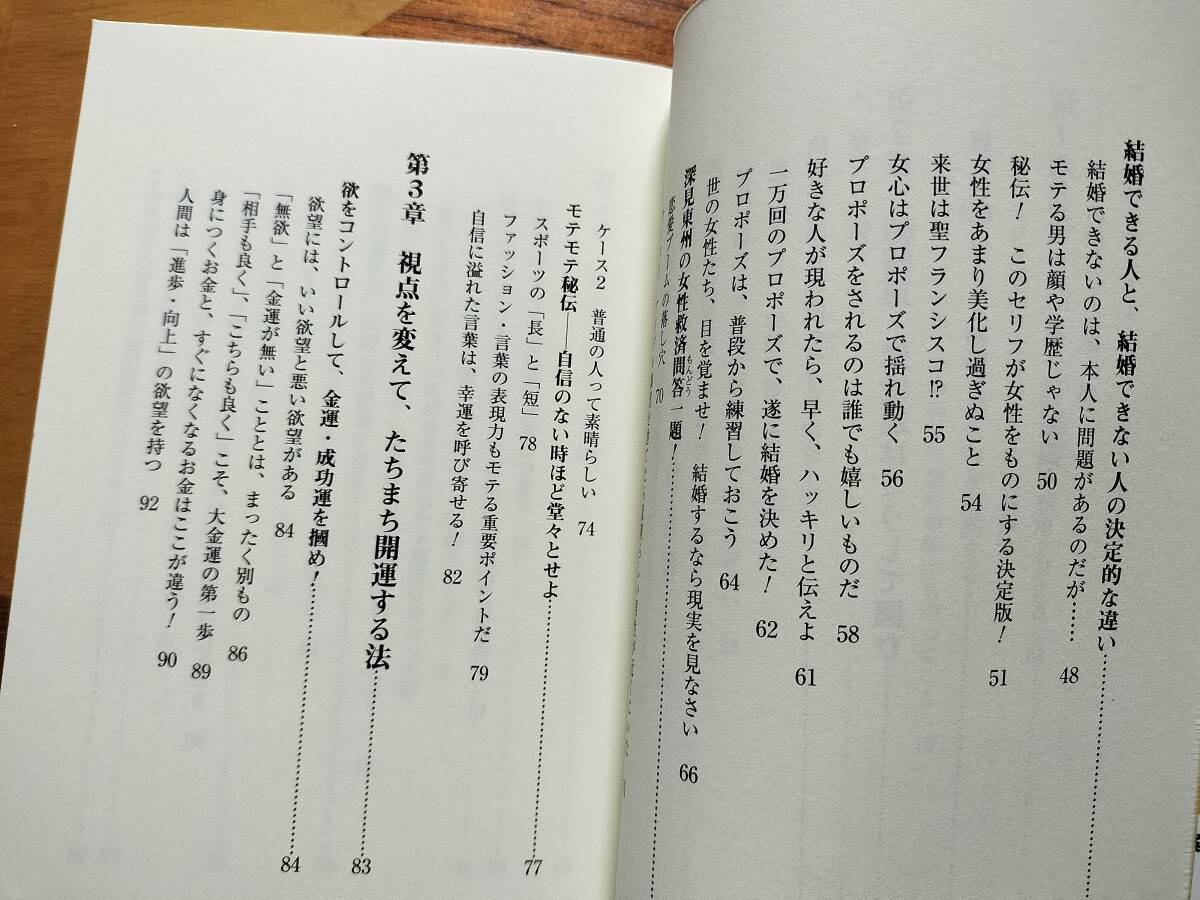 結婚できる人と、結婚できない人の決定的な違い……
結婚できないのは、本人に問題があるのだが…… 48
モテる男は顔や学歴じゃない 50
秘伝! このセリフが女性をものにする決定版! 51
女性をあまり美化し過ぎぬこと 54
来世は聖フランシスコ!? 55
女心はプロポーズで揺れ動く 56
プロポーズをされるのは誰でも嬉しいものだ 58
好きな人が現われたら、早く、ハッキリと伝えよ 61
一万回のプロポーズで、遂に結婚を決めた! 62
プロポーズは、普段から練習しておこう 64
世の女性たち、目を覚ませ! 結婚するなら現実を見なさい 66
深見東州の女性救済問答一題!……
もんどう
恋愛ブームの落し穴 70
ケース2 普通の人って素晴らしい 74
モテモテ秘伝――自信のない時ほど堂々とせよ…… 77
スポーツの「長」と「短」 78
ファッション・言葉の表現力もモテる重要ポイントだ 79
自信に溢れた言葉は、幸運を呼び寄せる! 82
第3章 視点を変えて、たちまち開運する法…… 83
欲をコントロールして、金運・成功運を摑め!…… 84
欲望には、いい欲望と悪い欲望がある 84
「無欲」と「金運が無い」こととは、まったく別もの 86
「相手も良く」、「こちらも良く」こそ、大金運の第一歩 89
身につくお金と、すぐになくなるお金はここが違う! 90
人間は「進歩・向上」の欲望を持つ 92